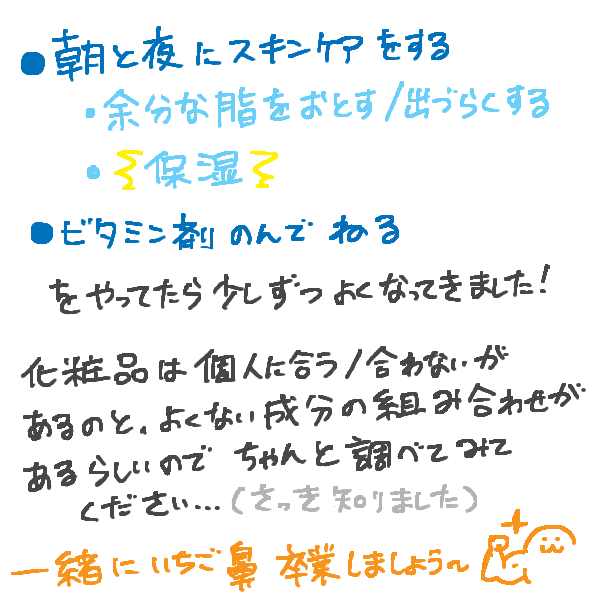 ●朝と夜にスキンケアをする
・余分な脂をおとす/出づらくする
・保湿
●ビタミン剤のんでねる
をやってたら少しずつよくなってきました!
化粧品は個人に合う/合わないが
あるのと、よくない成分の組み合わせが
あるらしいのでちゃんと調べてみて
ください…(さっき知りました)
一緒にいちご鼻卒業しましょう~